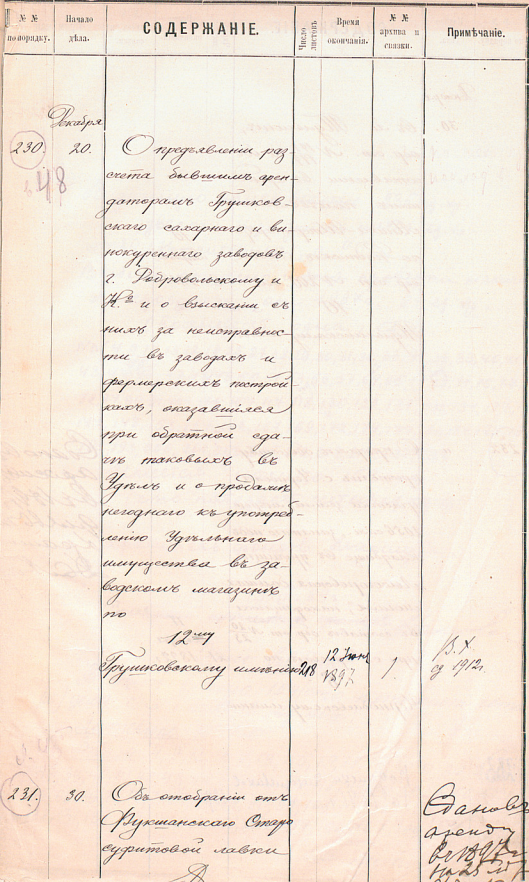 № №
по порядку.
Начало
дѣла.
СОДЕРЖАНІЕ.
Число
листовъ
Время
окончанія.
№ №
архива и
связки.
Примѣчаніе.
Декабря
230.
20.
О предъявленіи раз
счета бывшимъ арен-
даторамъ Грушков-
скаго сахарнаго и ви-
нокуреннаго заводовъ
г. Добровольскому и
Ко и о взысканіи съ
нихъ за неисправнос-
ти въ заводахъ и
фермерскихъ построй-
кахъ, оказавшіяся
при обратной сда-
чѣ таковыхъ въ
Удѣлъ и о продажѣ
негоднаго къ употреб-
ленію Удѣльнаго
имущества въ за-
водскомъ магазинѣ
по
12му
Грушковскому имѣнію
218
12 Іюня
1897
1
В. Х.
1912 г.
231.
30.
Объ отобраніи отъ
Фукшанскаго Старо
лавки
Сдановъ
аренду
въ 1897 г